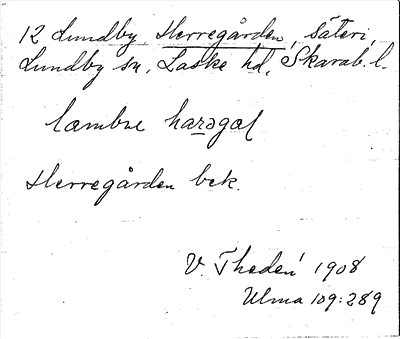 12 Lundby Herregården, säteri,
Lundby sn, Laske hd, Skarab. l.
haragal
Herregården bek.
V. Thedén 1908
Ulma 109:289